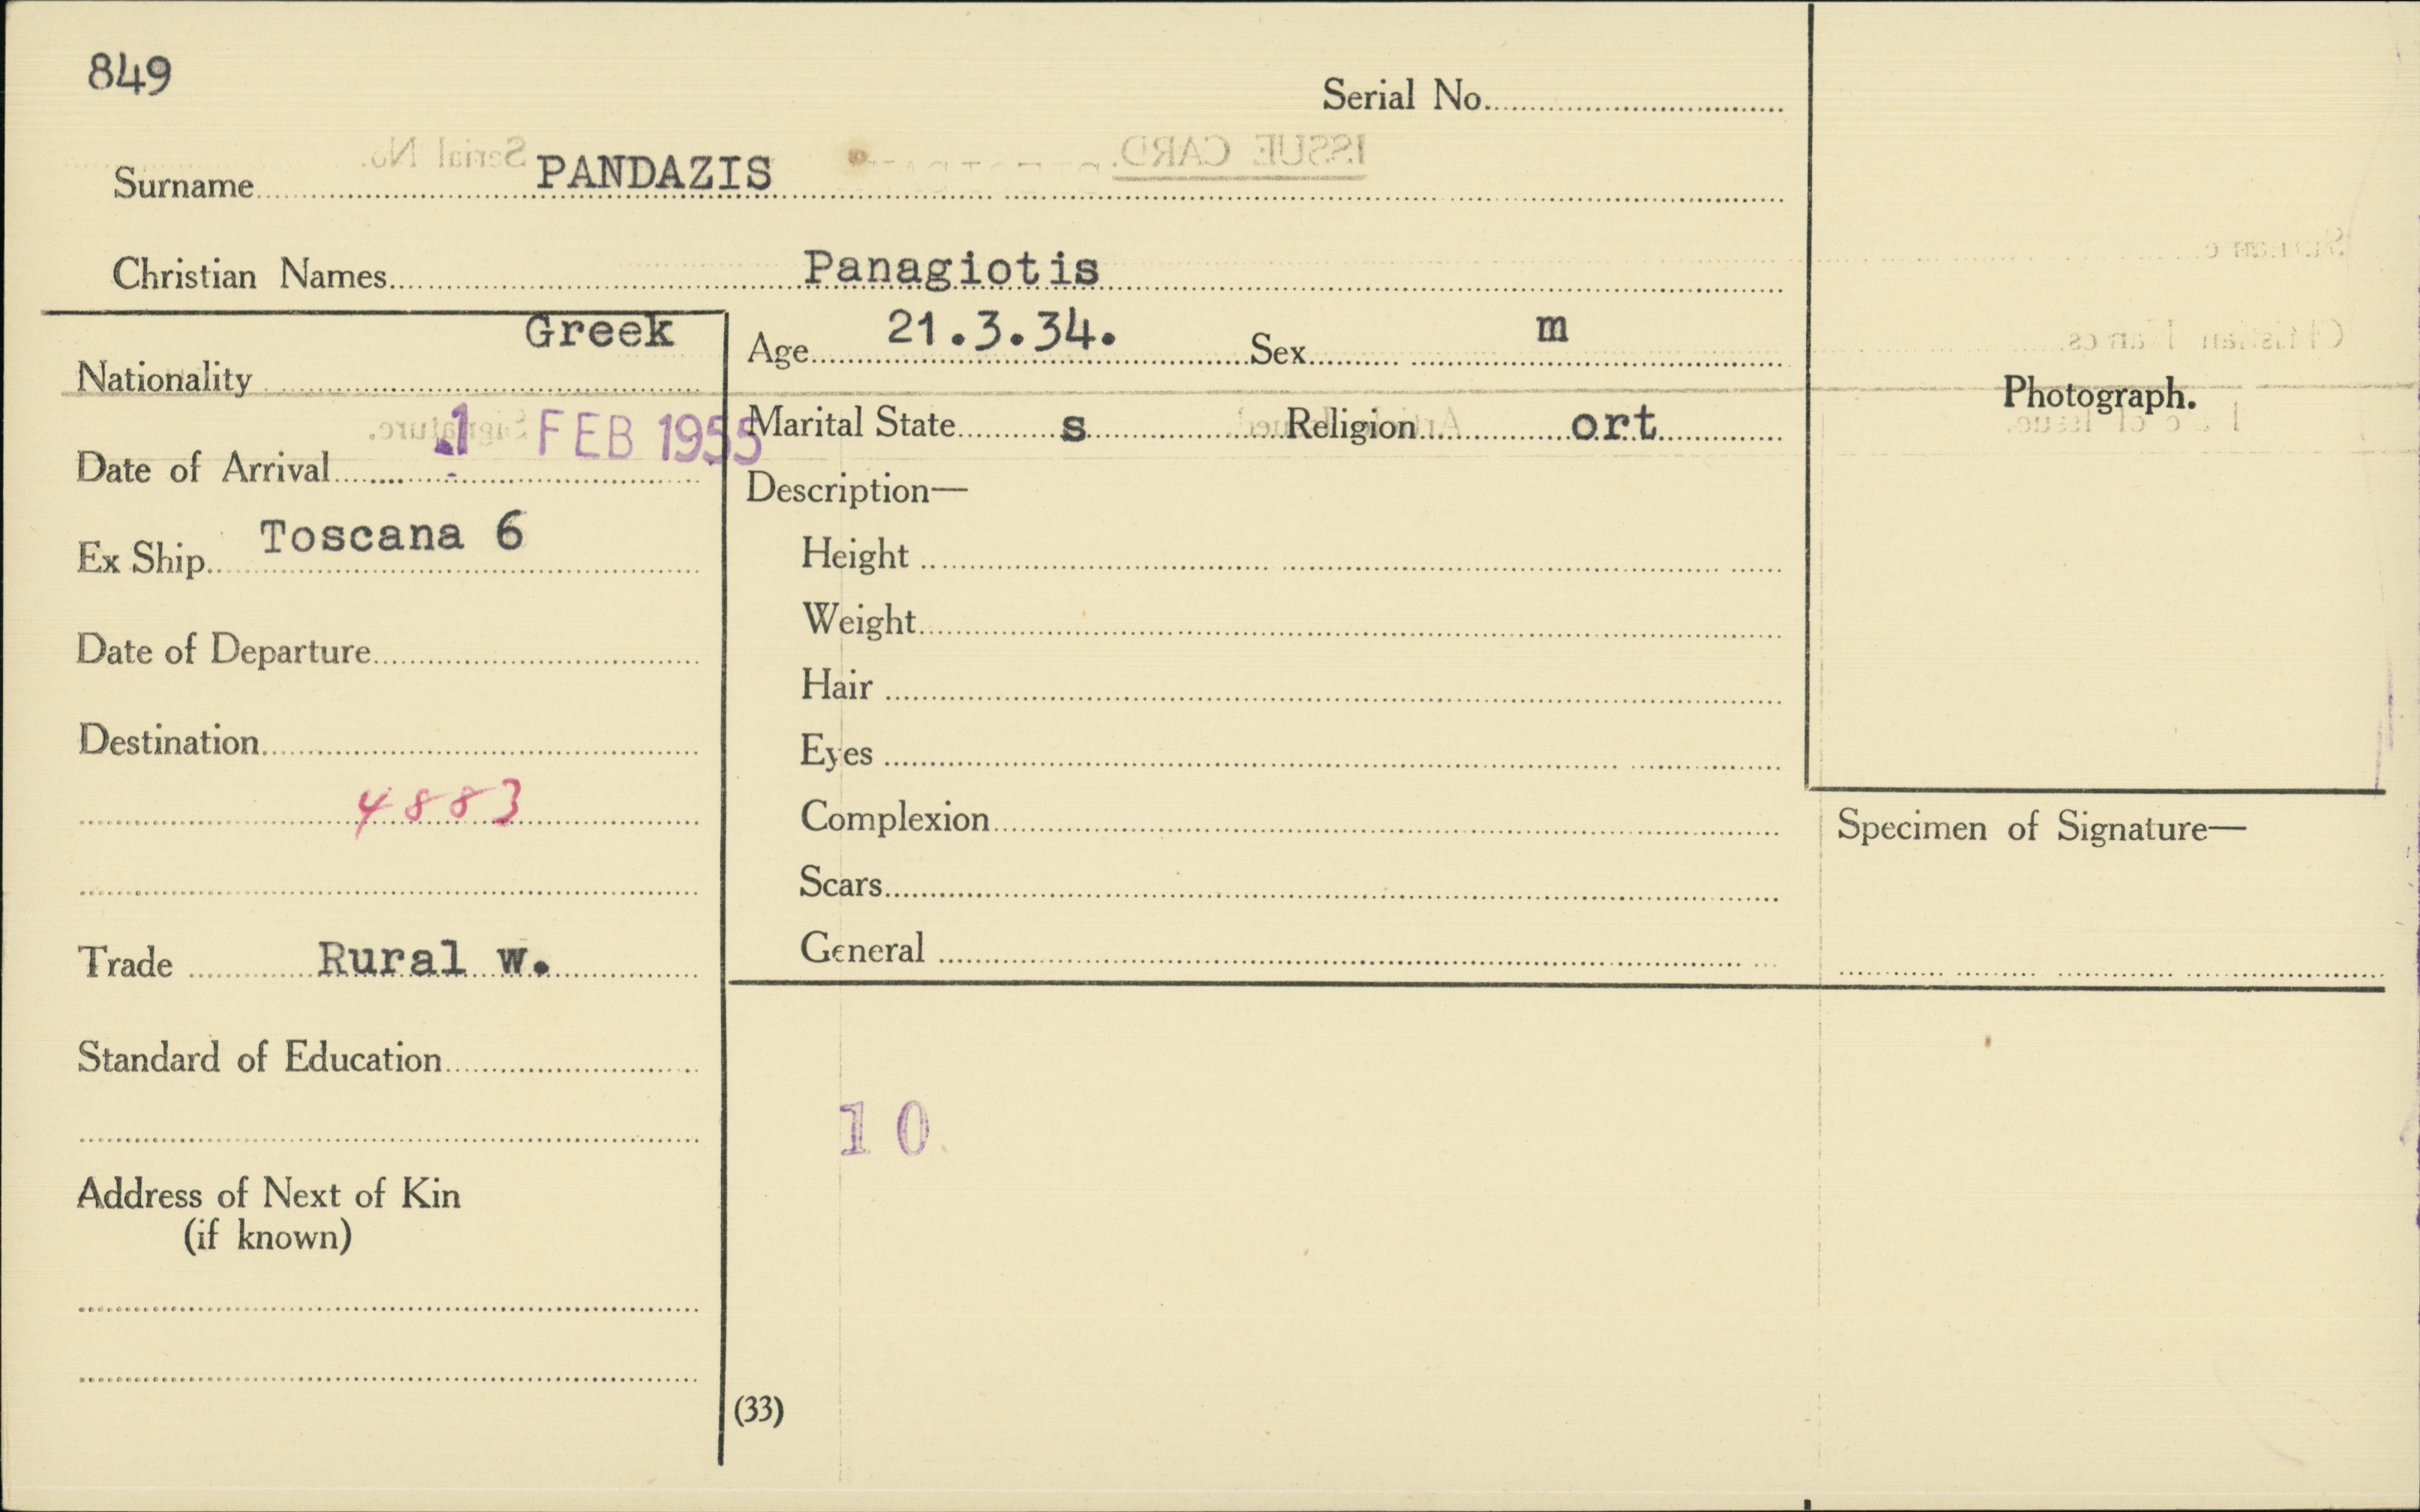 849
Serial No.
Surname PANDAZIS
Christian Names Panagiotis
Nationality Greek
Date of Arrival 1 FEB 1955
Ex Ship Toscana 6
Date of Departure
Destination
4883
Trade Rural w.
Standard of Education
Address of Next of Kin
(if known)
Age 21.3.34. Sex m
Marital State s Religion ort
Description—
Height
Weight
Hair
Eyes
Complexion
Scars
General
Photograph.
Specimen of Signature—
10
(33)